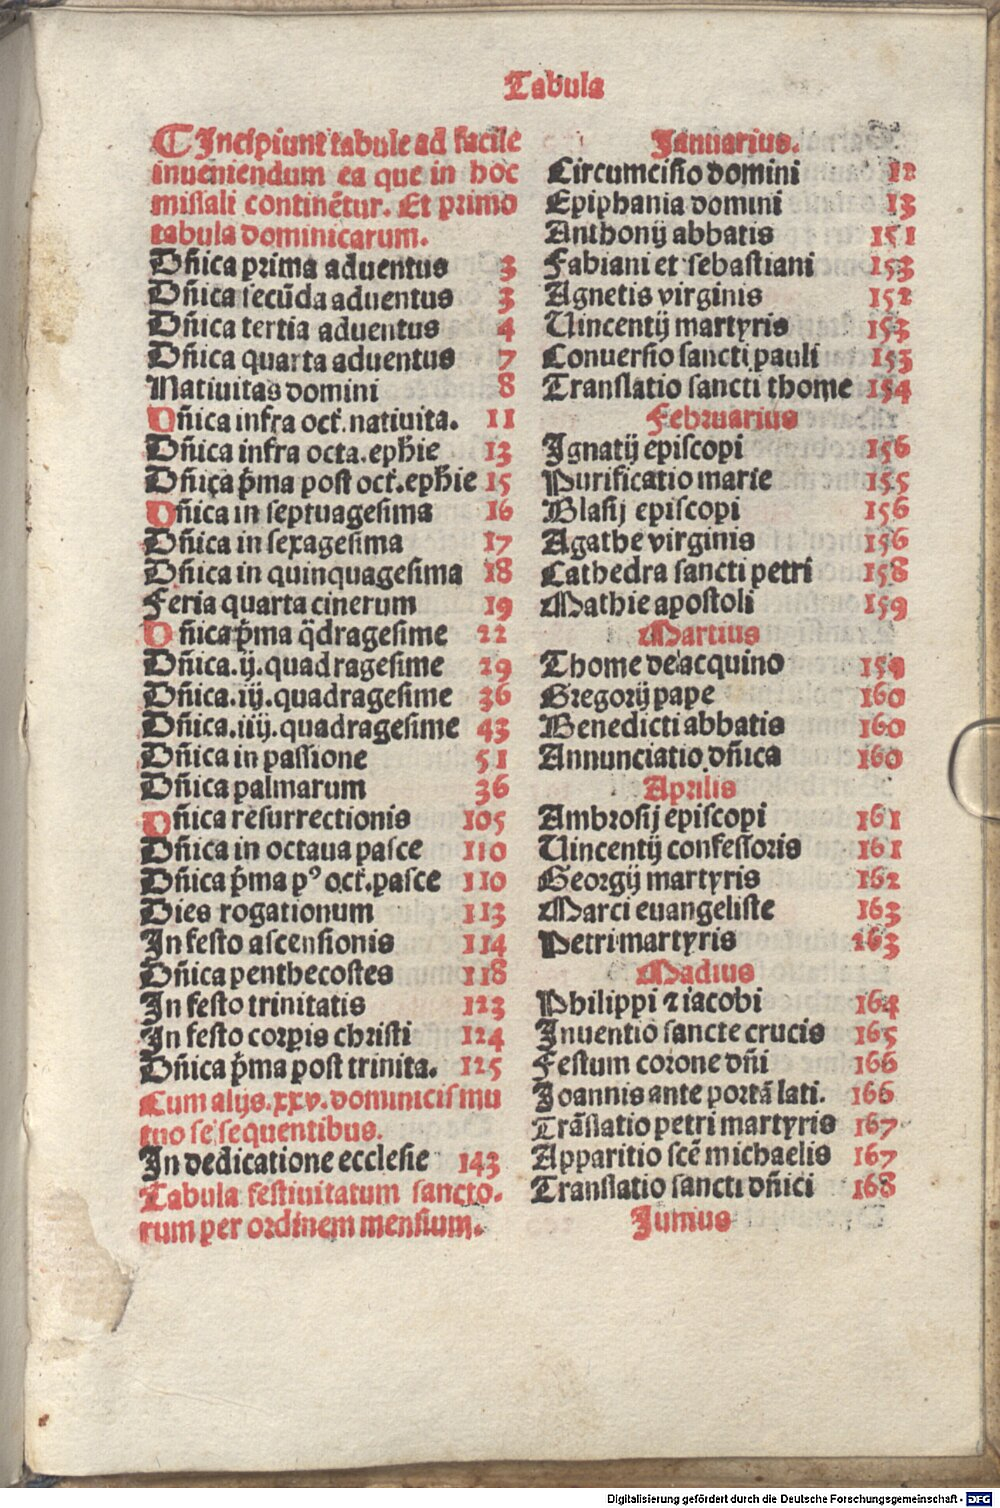 Tabula
Incipiunt tabule ad facile
inueniendum ea que in hoc
missali continētur. Et primo
tabula dominicarum.
Dñica prima aduentus 3
Dñica secūda aduentus 3
Dñica tertia aduentus 4
Dñica quarta aduentus 7
Natiuitas domini 8
Dñica infra oct. natiuita. 11
Dñica infra octa. ephie 13
Dñica p̄ma post oct. ephie 15
Dñica in septuagesima 16
Dñica in sexagesima 17
Dñica in quinquagesima 18
Feria quarta cinerum 19
Dñica p̄ma q̄dragesime 22
Dñica .ij. quadragesime 29
Dñica .iij. quadragesime 36
Dñica .iiij. quadragesime 43
Dñica in passione 51
Dñica palmarum 36
Dñica resurrectionis 105
Dñica in octaua pasce 110
Dñica p̄ma pꝰ oct. pasce 110
Dies rogationum 113
In festo ascensionis 114
Dñica penthecostes 118
In festo trinitatis 123
In festo corpis christi 124
Dñica p̄ma post trinita. 125
Cum alijs .xxv. dominicis mu
tuo se sequentibus.
In dedicatione ecclesie 143
Tabula festiuitatum sancto-
rum per ordinem mensium.
Januarius.
Circumcisio domini 12
Epiphania domini 13
Anthonij abbatis 151
Fabiani et sebastiani 153
Agnetis virginis 152
Uincentij martyris 153
Conuersio sancti pauli 153
Translatio sancti thome 154
Februarius
Ignatij episcopi 156
Purificatio marie 155
Blasij episcopi 156
Agathe virginis 156
Cathedra sancti petri 158
Mathie apostoli 159
Martius
Thome de acquino 159
Gregorij pape 160
Benedicti abbatis 160
Annunciatio dñica 160
Aprilis
Ambrosij episcopi 161
Uincentij confessoris 161
Georgij martyris 162
Marci euangeliste 163
Petri martyris 163
Madius
Philippi ⁊ iacobi 164
Inuentio sancte crucis 165
Festum corone dñi 166
Joannis ante portā lati. 166
Trāslatio petri martyris 167
Apparitio scē michaelis 167
Translatio sancti dñici 168
Junius
Digitalisierung gefördert durch die Deutsche Forschungsgemeinschaft - DFG